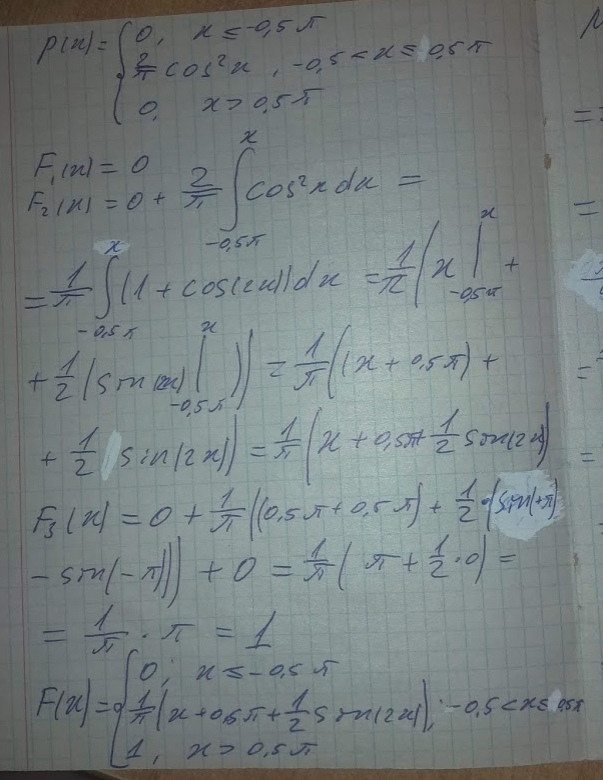 p(x) = { 0, x ≤ -0,5π
2/π cos²x, -0,5 < x ≤ 0,5π
0, x > 0,5π
F₁(x) = 0
F₂(x) = 0 + 2/π ∫_{-0,5π}^{x} cos²x dx =
= 1/π ∫_{-0,5π}^{x} (1 + cos(2x)) dx = 1/π (x |_{-0,5π}^{x} +
+ 1/2 (sin(2x) |_{-0,5π}^{x} )) = 1/π ((x + 0,5π) +
+ 1/2 sin(2x)) = 1/π (x + 0,5π + 1/2 sin(2x))
F₃(x) = 0 + 1/π ((0,5π + 0,5π) + 1/2 · (sin(+π)
- sin(-π))) + 0 = 1/π ( π + 1/2 · 0) =
= 1/π · π = 1
F(x) = { 0; x ≤ -0,5π
1/π (x + 0,5π + 1/2 sin(2x)); -0,5 < x ≤ 0,5π
1, x > 0,5π